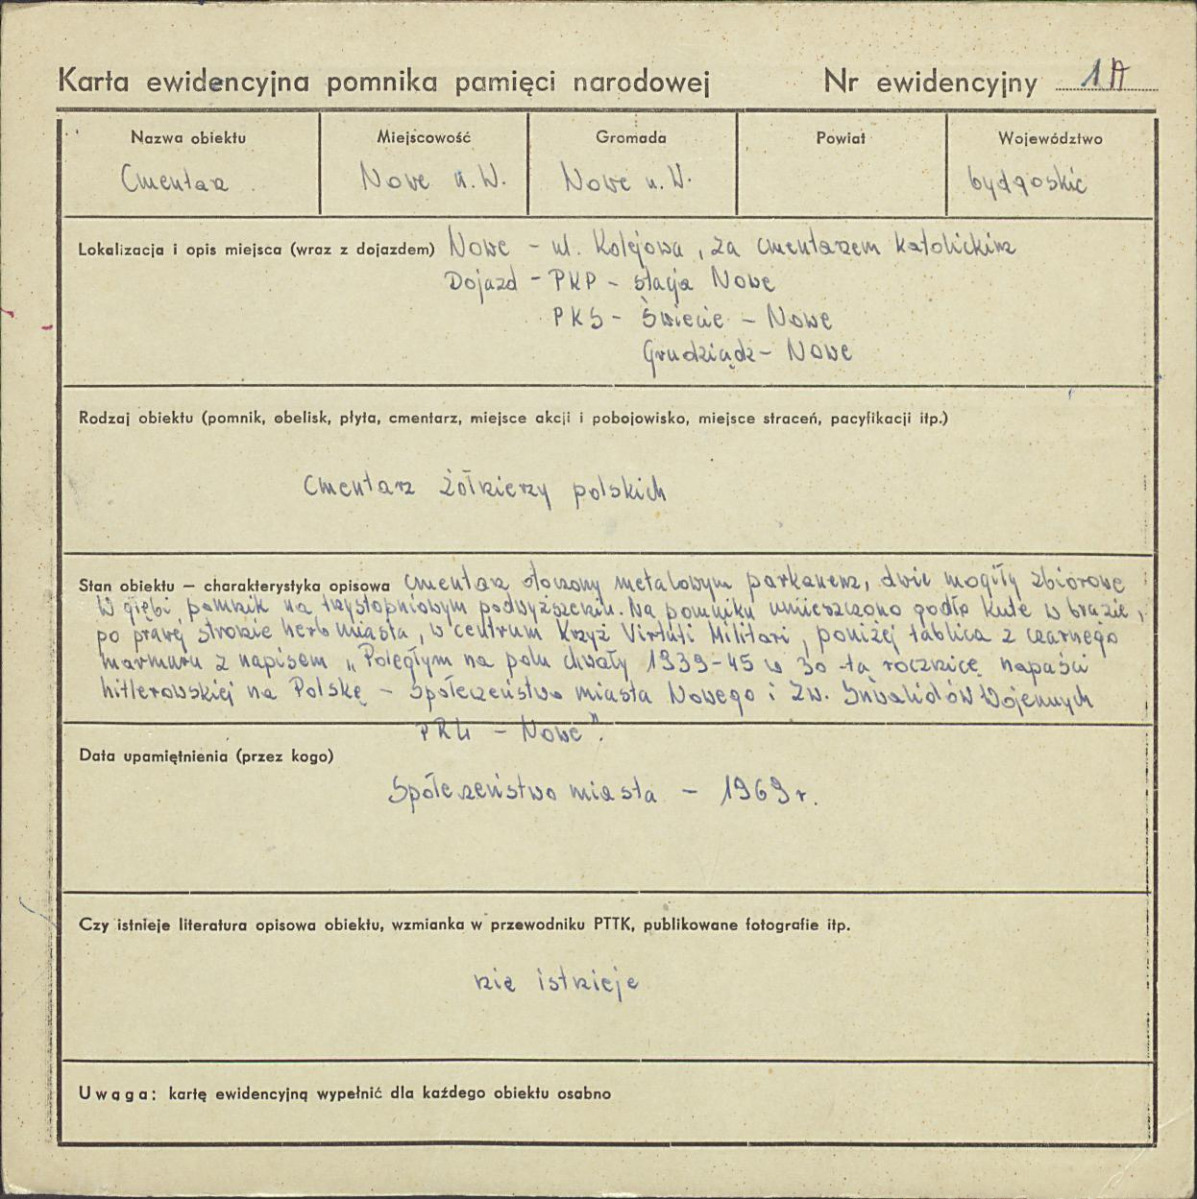 Karta ewidencyjna pomnika pamięci narodowej Nr ewidencyjny 1A
Nazwa obiektu Miejscowość Gromada Powiat Województwo
Cmentarz Nowe n.W. Nowe n.W. bydgoskie
Lokalizacja i opis miejsca (wraz z dojazdem) Nowe – ul. Kolejowa, za cmentarzem katolickim
Dojazd – PKP – stacja Nowe
PKS – Świecie – Nowe
Grudziądz – Nowe
Rodzaj obiektu (pomnik, obelisk, płyta, cmentarz, miejsce akcji i pobojowisko, miejsce straceń, pacyfikacji itp.)
Cmentarz żołnierzy polskich
Stan obiektu — charakterystyka opisowa cmentarz otoczony metalowym parkanem, dwie mogiły zbiorowe
W głębi pomnik na trzystopniowym podwyższeniu. Na pomniku umieszczono godło kute w brązie,
po prawej stronie herb miasta, w centrum Krzyż Virtuti Militari, poniżej tablica z czarnego
marmuru z napisem „Poległym na polu chwały 1939-45 w 30-tą rocznicę napaści
hitlerowskiej na Polskę – Społeczeństwo miasta Nowego i Zw. Inwalidów Wojennych
PRL – Nowe".
Data upamiętnienia (przez kogo)
Społeczeństwo miasta – 1969 r.
Czy istnieje literatura opisowa obiektu, wzmianka w przewodniku PTTK, publikowane fotografie itp.
nie istnieje
Uwaga: kartę ewidencyjną wypełnić dla każdego obiektu osobno